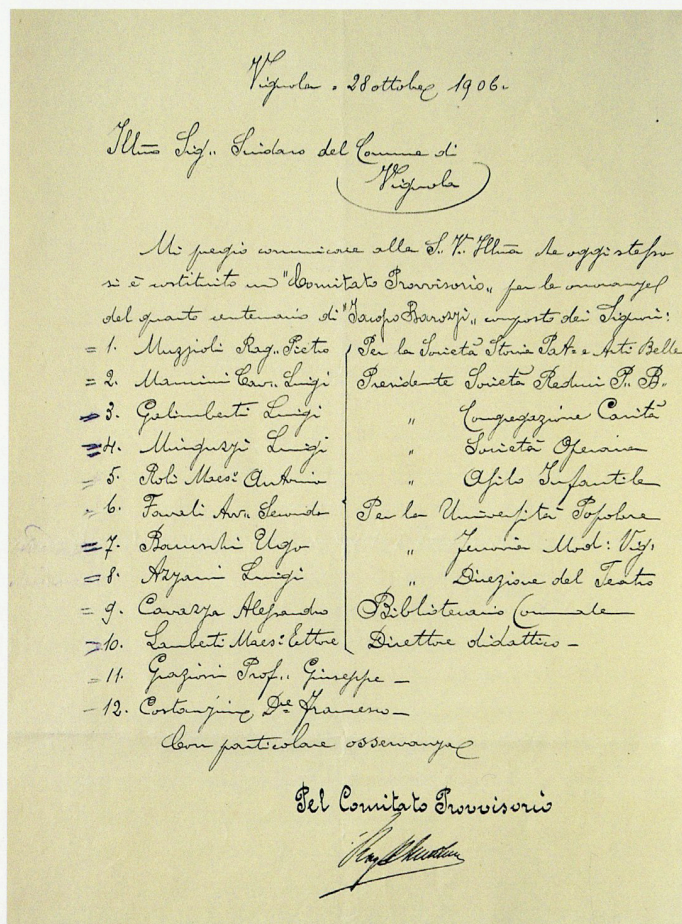 Vignola = 28 ottobre 1906.
Illmo Sig.. Sindaco del Comune di
Vignola
Mi pregio comunicare alla S. V. Illma che oggi stesso
si è costituito un "Comitato Provvisorio" per le onoranze
del quarto centenario di "Jacopo Barozzi" composto dei Signori:
= 1. Muzzioli Rag.. Pietro Per la Società Storia Pat.e e Arti Belle
= 2. Mannini Cav.. Luigi Presidente Società Reduci P. B.
= 3. Galimberti Luigi " Congregazione Carità
= 4. Minguzzi Luigi " Società Operaia
= 5. Roli Maes: Antonio " Asilo Infantile
= 6. Avv.. Secondo Per la Università Popolare
= 7. Ugo " Ferrovia Mod: Vig:
= 8. Azzani Luigi " Direzione del Teatro
= 9. Cavazza Alessandro Bibliotecario Comunale
= 10. Lamberti Maes: Ettore Direttore didattico -
= 11. Grazioni Prof.. Giuseppe -
- 12. Costanzini Dre Francesco -
Con particolare osservanza
Pel Comitato Provvisorio